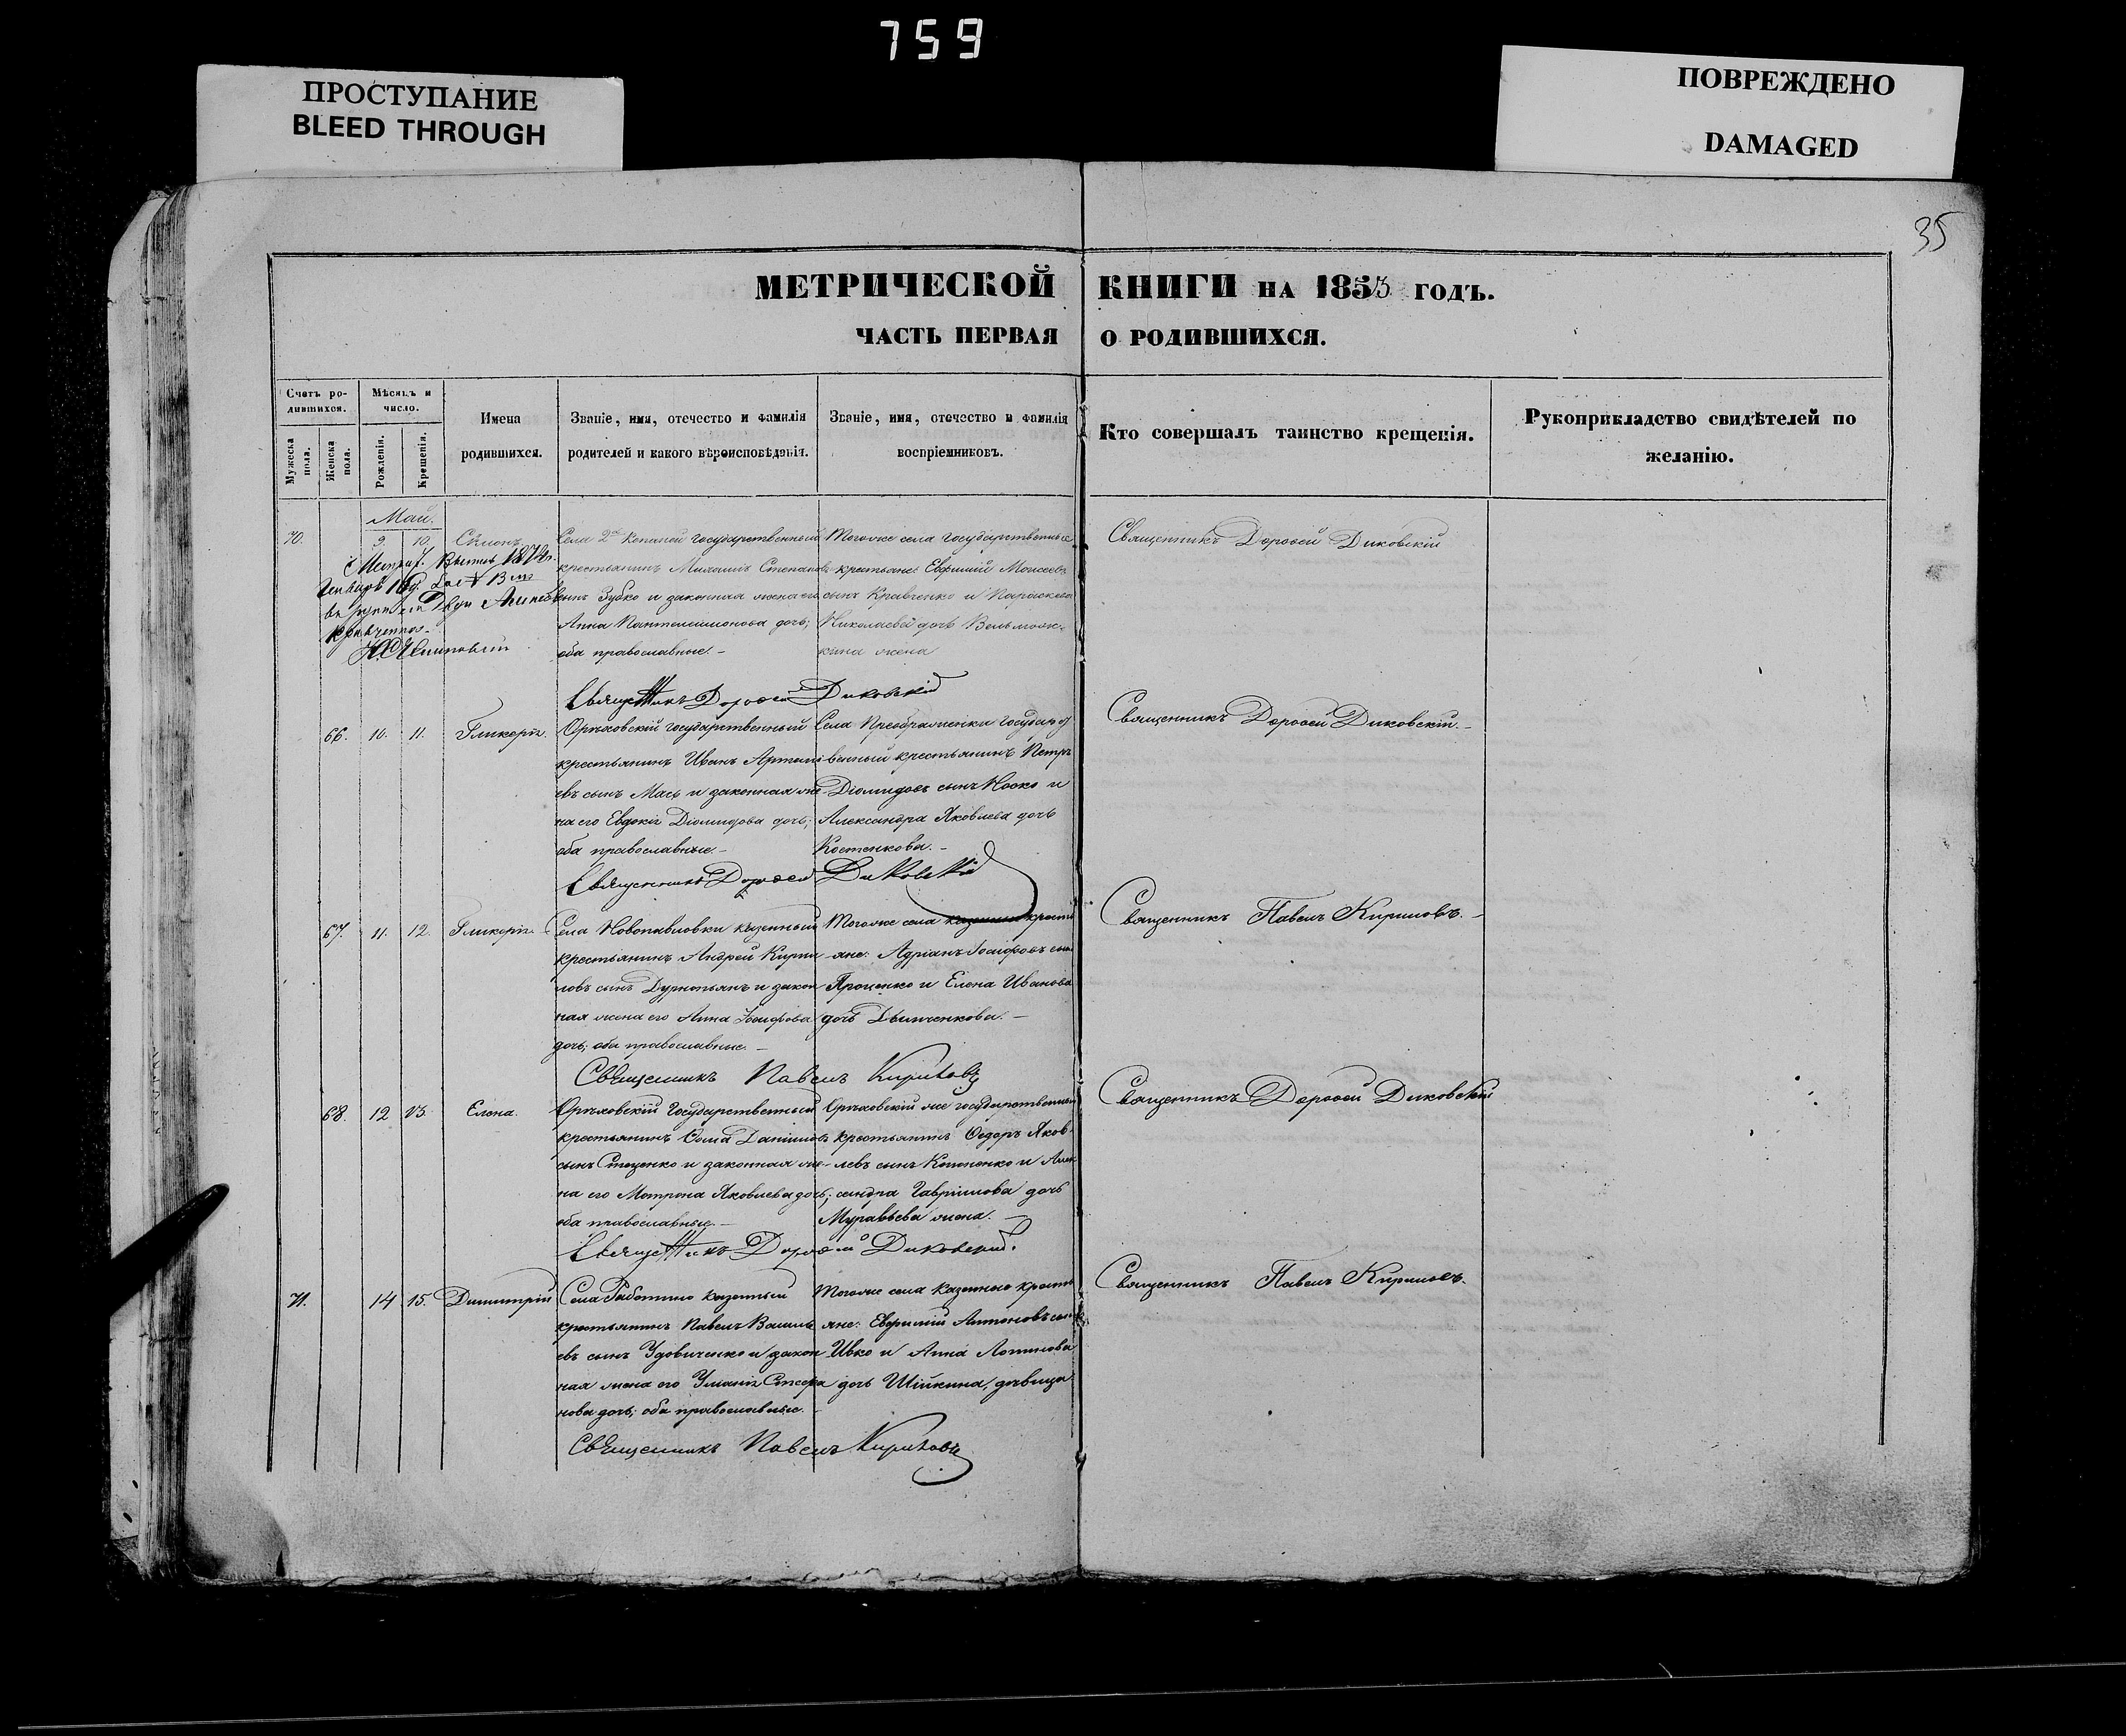 759
ПРОСТУПАНИЕ
BLEED THROUGH
ПОВРЕЖДЕНО
DAMAGED
35
МЕТРИЧЕСКОЙ КНИГИ НА 1853 ГОДЪ.
ЧАСТЬ ПЕРВАЯ О РОДИВШИХСЯ.
Счетъ ро-
дившихся.
Мужеска пола.
Женска пола.
Мѣсяцъ и
число.
Рожденія.
Крещенія.
Имена
родившихся.
Званіе, имя, отечество и фамилія
родителей и какого вѣроисповѣданія.
Званіе, имя, отечество и фамилія
воспріемниковъ.
Кто совершалъ таинство крещенія.
Рукоприкладство свидѣтелей по
желанію.
Май.
70. 9. 10. Сѵмеонъ
Села 2й Копаней государственный
крестьянинъ Михаилъ Степановъ
сынъ Зубко и законная жена его
Анна Пантелеимонова дочь;
оба православные. –
Тогоже села государственные
крестьяне: Евфимій Моисеевъ
сынъ Кравченко и Параскева
Николаева дочь Вельмож-
кина жена
Священникъ Дорофей Диковскій
Священникъ Дорофей Диковскій
66. 10. 11. Гликерія.
Орѣховскій государственный
крестьянинъ Иванъ Артемі
евъ сынъ Мась и законная же
на его Евдокія Діомидова дочь;
оба православные. –
Села Преображенки государст
венный крестьянинъ Петръ
Діомидовъ сынъ и
Александра Яковлева дочь
Костенкова. –
Священникъ Дорофей Диковскій. –
Священникъ Дорофей Диковскій
67. 11. 12. Гликерія.
Села Новопавловки казенный
крестьянинъ Андрей Кирил
ловъ сынъ Дурнопьянъ и закон
ная жена его Анна Іосифова
дочь; оба православные. –
Тогоже села казенные кресть
яне: Адріанъ Іосифовъ сынъ
Проценко и Елена Иванова
дочь Дьяченкова. –
Священникъ Павелъ Кириловъ. –
Священникъ Павелъ Кириловъ
68. 12 13 Елена.
Орѣховскій Государственный
крестьянинъ Ѳома Даніиловъ
сынъ Стеценко и законная же-
на его Матрона Яковлева дочь;
оба православные. –
Орѣховскій же государственный
крестьянинъ Ѳедоръ Яков-
левъ сынъ Кононенко и Алек
сандра Гавріилова дочь
Муравьева жена. –
Священникъ Дорофей Диковскій
Священникъ Дорофей Диковскій.
71. 14 15. Димитрій
Села Работино казенный
крестьянинъ Павелъ Василь
евъ сынъ Удовиченко и закон
ная жена его Уліанія Стефа
нова дочь; оба православные.
Тогоже села казенные кресть
яне: Евфимій Антоновъ сынъ
Ивко и Анна Логинова
дочь Шійкина, дѣвица
Священникъ Павелъ Кириловъ.
Священникъ Павелъ Кириловъ